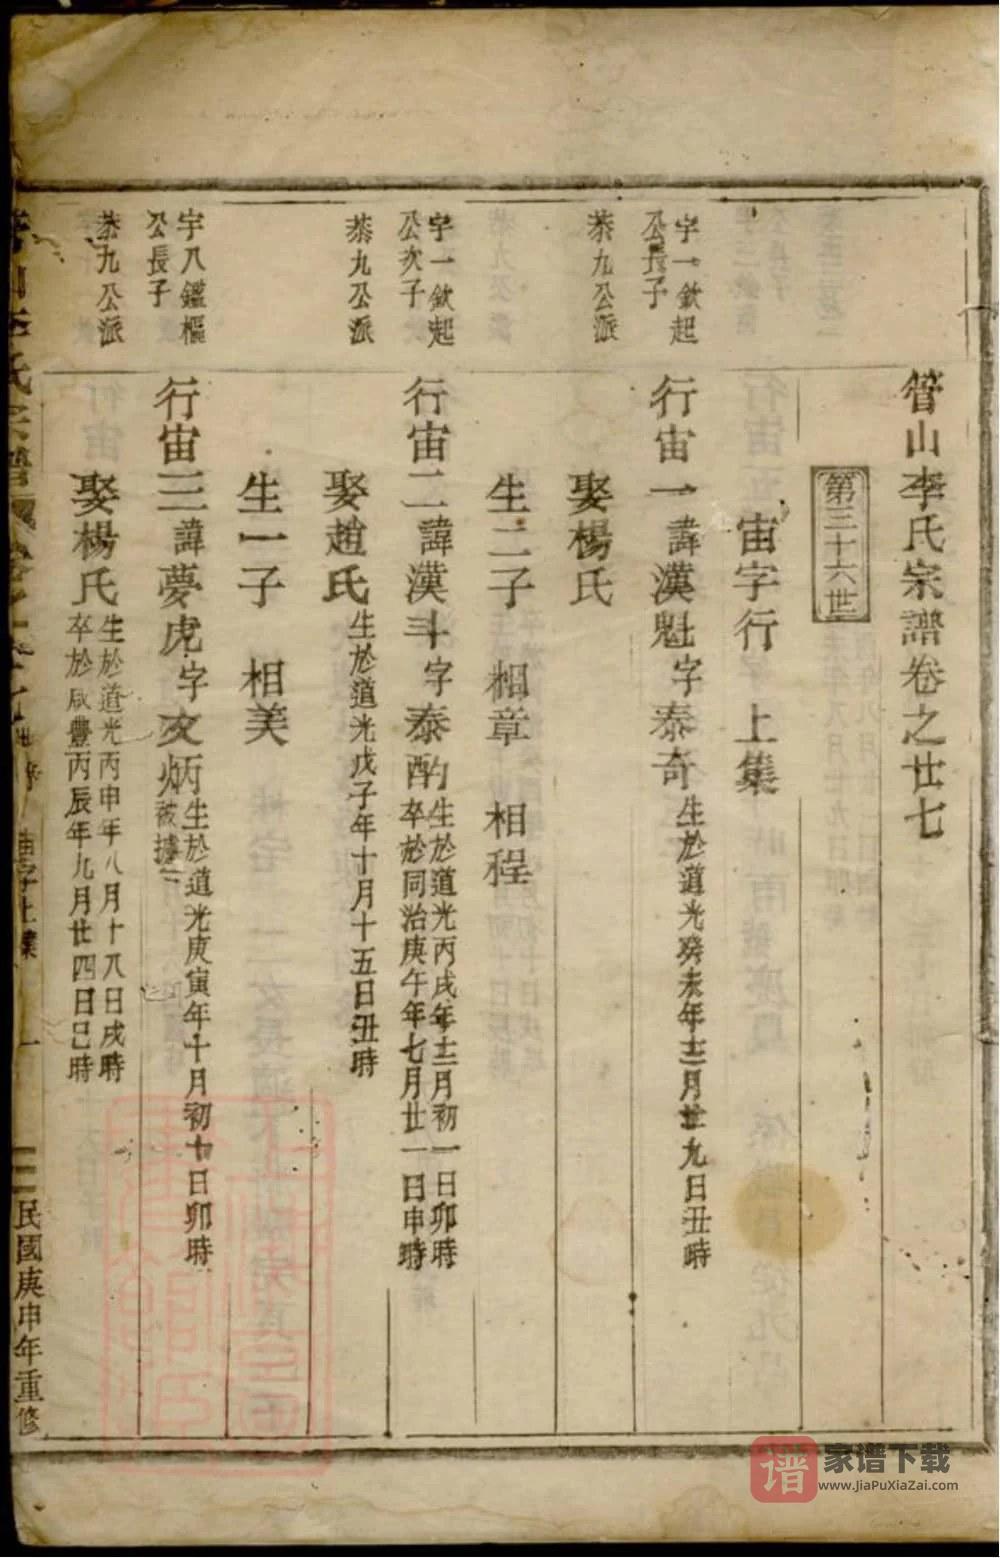 管山李氏宗譜卷之廿七
第三十六世
宙字行　上集
宇一欽起
公長子
行宙一諱漢魁字泰奇生於道光癸未年十二月廿九日丑時
茶九公派
娶楊氏
生二子　相章　相程
宇一欽起
公次子
行宙二諱漢斗字泰酌生於道光丙戌年十二月初一日卯時
卒於同治庚午年七月廿一日申時
茶九公派
娶趙氏生於道光戊子年十月十五日丑時
生一子　相美
宇八鑑樞
公長子
行宙三諱夢虎字文炳生於道光庚寅年十月初十日卯時
被擄
茶九公派
娶楊氏生於道光丙申年八月十八日戌時
卒於咸豐丙辰年九月廿四日巳時
山李氏宗譜
宙字上集
一
民國庚申年重修
谱
家谱下载
www.JiaPuXiaZai.com